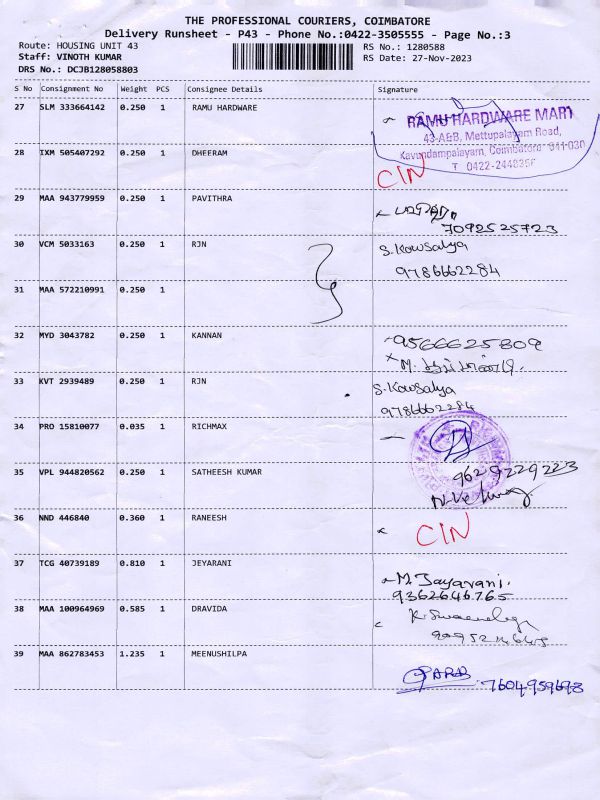 THE PROFESSIONAL COURIERS, COIMBATORE
Delivery Runsheet - P43 - Phone No.:0422-3505555 - Page No.:3
Route: HOUSING UNIT 43 RS No.: 1280588
Staff: VINOTH KUMAR RS Date: 27-Nov-2023
DRS No.: DCJB128058803
S No Consignment No Weight PCS Consignee Details Signature
27 SLM 333664142 0.250 1 RAMU HARDWARE
RAMU HARDWARE MART
43-A&B, Mettupalayam Road,
Kavundampalayam, Coimbatore-641 030
T 0422-2448356
28 IXM 505407292 0.250 1 DHEERAM CIN
29 MAA 943779959 0.250 1 PAVITHRA
7092525723
30 VCM 5033163 0.250 1 RJN S. Kowsalya
9786662284
31 MAA 572210991 0.250 1
32 MYD 3043782 0.250 1 KANNAN 9566625809
33 KVT 2939489 0.250 1 RJN S. Kowsalya
9786662284
34 PRO 15810077 0.035 1 RICHMAX
35 VPL 944820562 0.250 1 SATHEESH KUMAR 9629229223
36 NND 446840 0.360 1 RANEESH CIN
37 TCG 40739189 0.810 1 JEYARANI M. Jayarani.
9362646765
38 MAA 100964969 0.585 1 DRAVIDA
39 MAA 862783453 1.235 1 MEENUSHILPA
7604959693